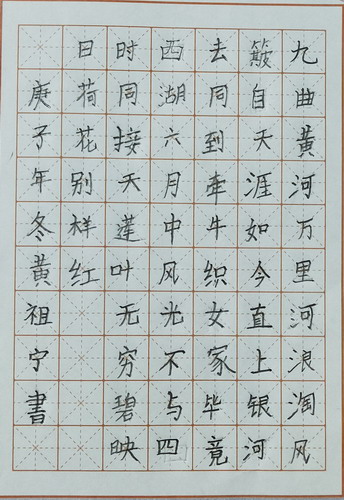 九曲黄河万里河浪淘风
簸自天涯如今直上银河
去同到牵牛织女家毕竟
西湖六月中风光不与四
时同接天莲叶无穷碧映
日荷花别样红
庚子年冬黄祖宁書